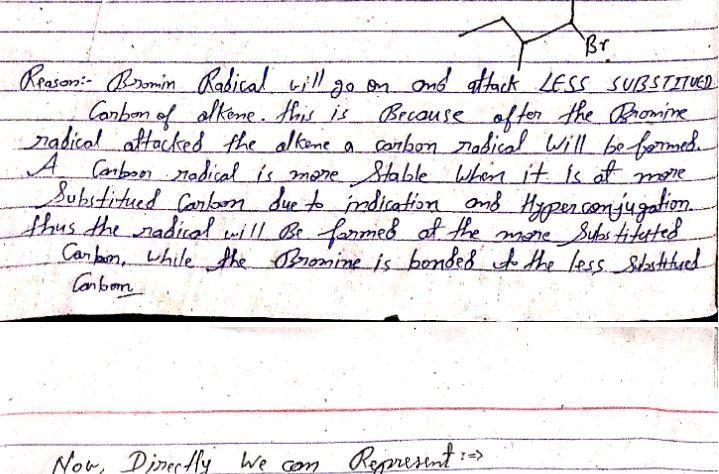 Br
Reason:- Bromin Radical will go on and attack LESS SUBSTITUED
Carbon of alkene. this is Because after the Bromine
radical attacked the alkene a carbon radical will be formed.
A Carbon radical is more Stable when it is at more
Substitued Carbon due to indication and Hyperconjugation.
thus the radical will Be formed at the more Substituted
Carbon, while the Bromine is bonded to the less Substitued
Carbon
Now, Directly We can Represent :⇒